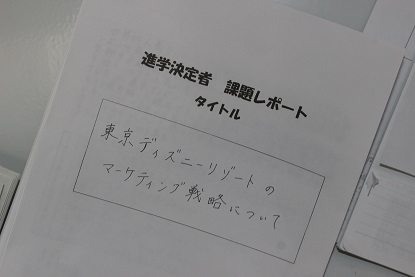 進学決定者 課題レポート
タイトル
東京ディズニーリゾートの
マーケティング戦略について